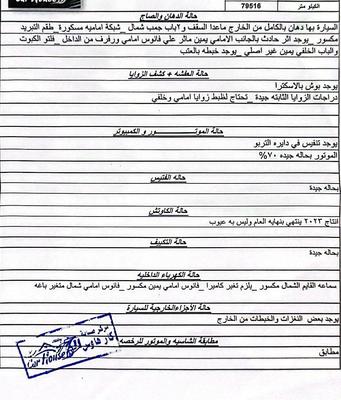 الكيلو متر
79516
حالة الدهان والصاج
السيارة بها دهان بالكامل من الخارج ماعدا السقف و٢باب جمب شمال _ شبكة اماميه مسكورة_ طقم التبريد
مكسور _ يوجد اثر حادث بالجانب الامامي يمين ماثر علي فانوس امامي ورفرف من الداخل _ فلتر الكبوت
والباب الخلفي يمين غير اصلي _ يوجد خبطه بالعتب
حالة العفشه + كشف الزوايا
يوجد بوش بالاسكترا
دراجات الزوايا الثابته جيدة _ تحتاج لظبط زوايا امامي وخلفي
حالة الموتـــــور و الكمبيوتر
يوجد تنفيس في دايره التربو
الموتور بحاله جيده ٧٠%
حاله الفتيس
بحاله جيدة
حالة الكاوتش
انتاج ٢٠٢٣ ينتهي بنهايه العام وليس به عيوب
حالة التكييف
بحاله جيدة
حالة الكهرباء الداخليه
سماعه القايم الشمال مكسور _ يلزم تغير كاميرا _فانوس امامي يمين مكسور _فانوس امامي شمال متغير باغه
حالة الأجزاءالخارجية للسيارة
يوجد بعض النغزات والخبطات من الخارج
مطابقة الشاسيه والموتور للرخصه
مطابق
مركز صيانة
كار هاوس
Car House